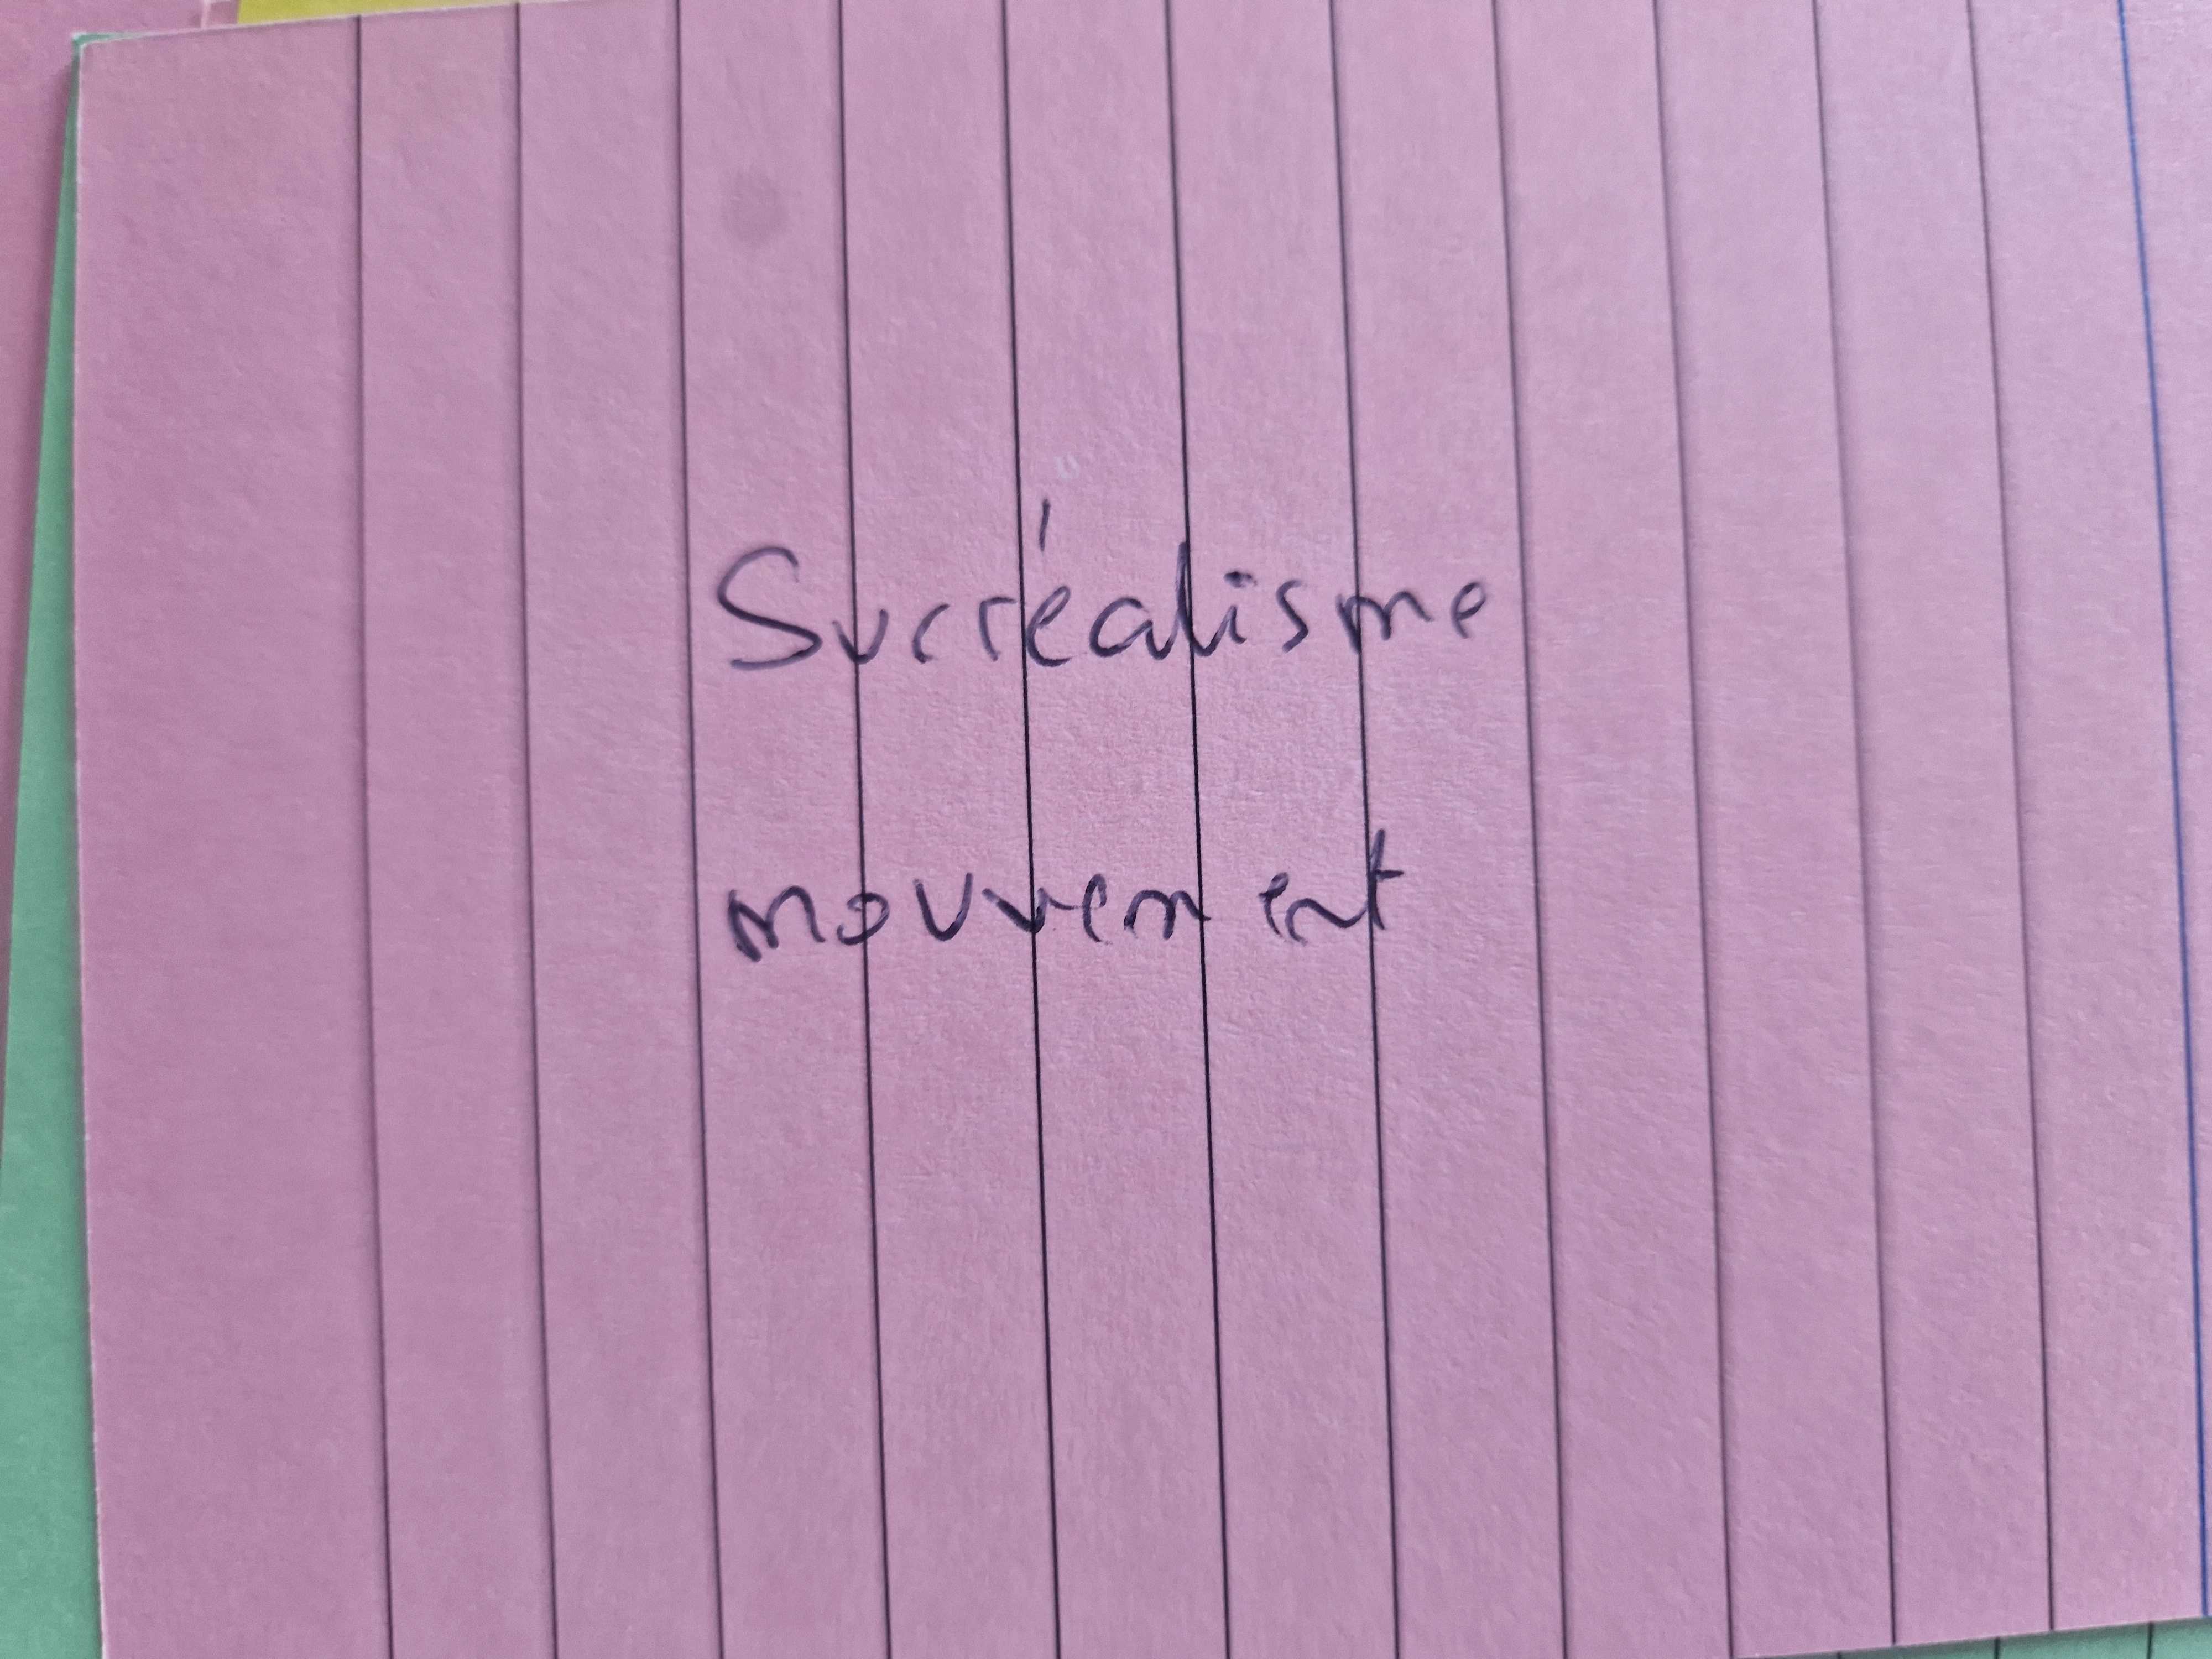 Surréalisme
mouvement